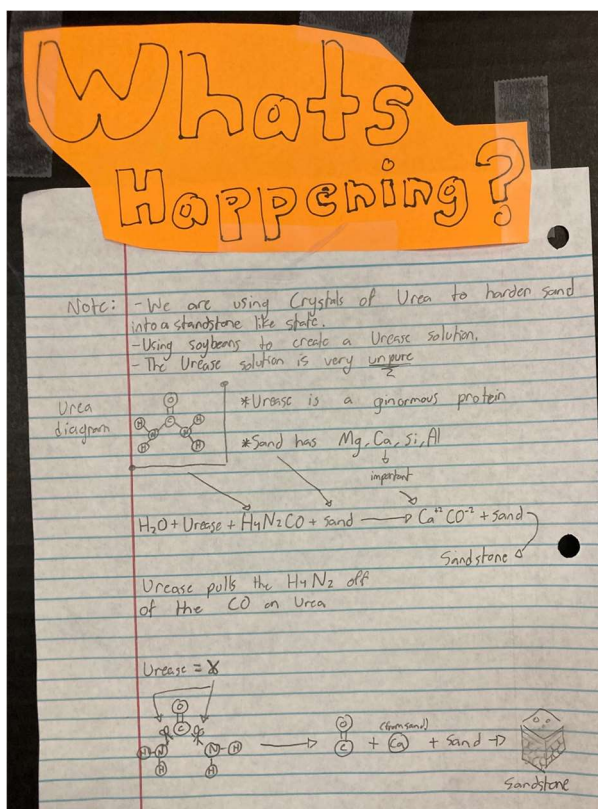 Whats
Happening?
Note: - We are using Crystals of Urea to harden sand
into a standstone like state.
- Using soybeans to create a Urease solution.
- The Urease solution is very unpure
Urea
diagram
O
C
H N N H
H H
*Urease is a ginormous protein
*Sand has Mg, Ca, Si, Al
important
H₂O + Urease + H₄N₂CO + sand → Ca⁺² CO⁻² + Sand
Sandstone
Urease pulls the H₄N₂ off
of the CO on Urea
Urease =
O
C
H-N N-H
H H
→ O
C
+ (from sand)
Ca
+ sand →
Sandstone